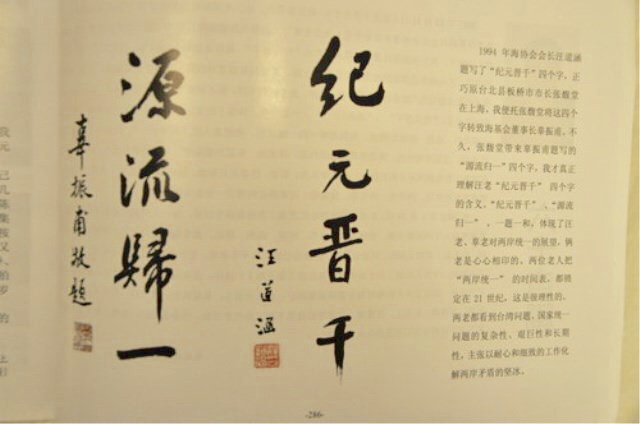 纪元晋千
汪道涵
源流歸一
辜振甫敬題
1994 年海协会会长汪道涵
题写了“纪元晋千”四个字，正
巧原台北县板桥市市长张馥堂
在上海，我便托张馥堂将这四个
字转致海基会董事长辜振甫。不
久，张馥堂带来辜振甫题写的
“源流归一”四个字，我才真正
理解汪老“纪元晋千” 四个字
的含义。“纪元晋千”、“源流
归一”，一题一和，体现了汪
老、辜老对两岸统一的展望，俩
老是心心相印的。两位老人把
“两岸统一” 的时间表，都锁
定在 21 世纪，这是很理性的。
两老都看到台湾问题、国家统一
问题的复杂性、艰巨性和长期
性，主张以耐心和细致的工作化
解两岸矛盾的坚冰。
-286-